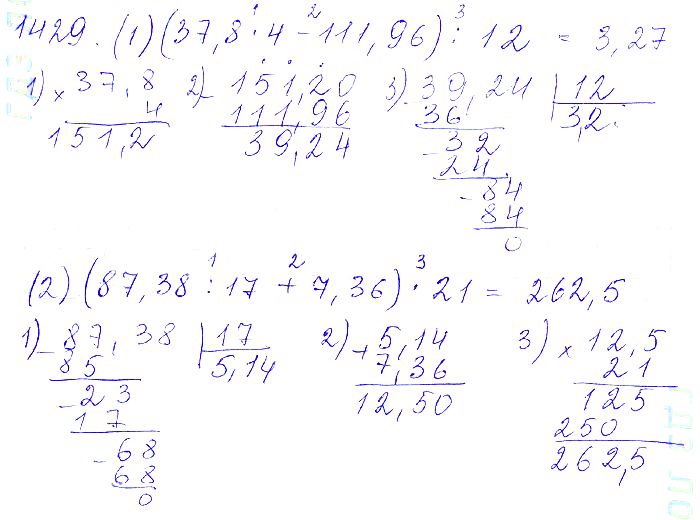 1429. (1) (37,8 · 4 - 111,96) : 12 = 3,27
1) × 37,8
4
151,2
2) - 151,20
111,96
39,24
3) - 39,24 | 12
36 3,2
- 32
24
- 84
84
0
(2) (87,38 : 17 + 7,36) · 21 = 262,5
1) - 87,38 | 17
85 5,14
- 23
17
- 68
68
0
2) + 5,14
7,36
12,50
3) × 12,5
21
125
250
262,5